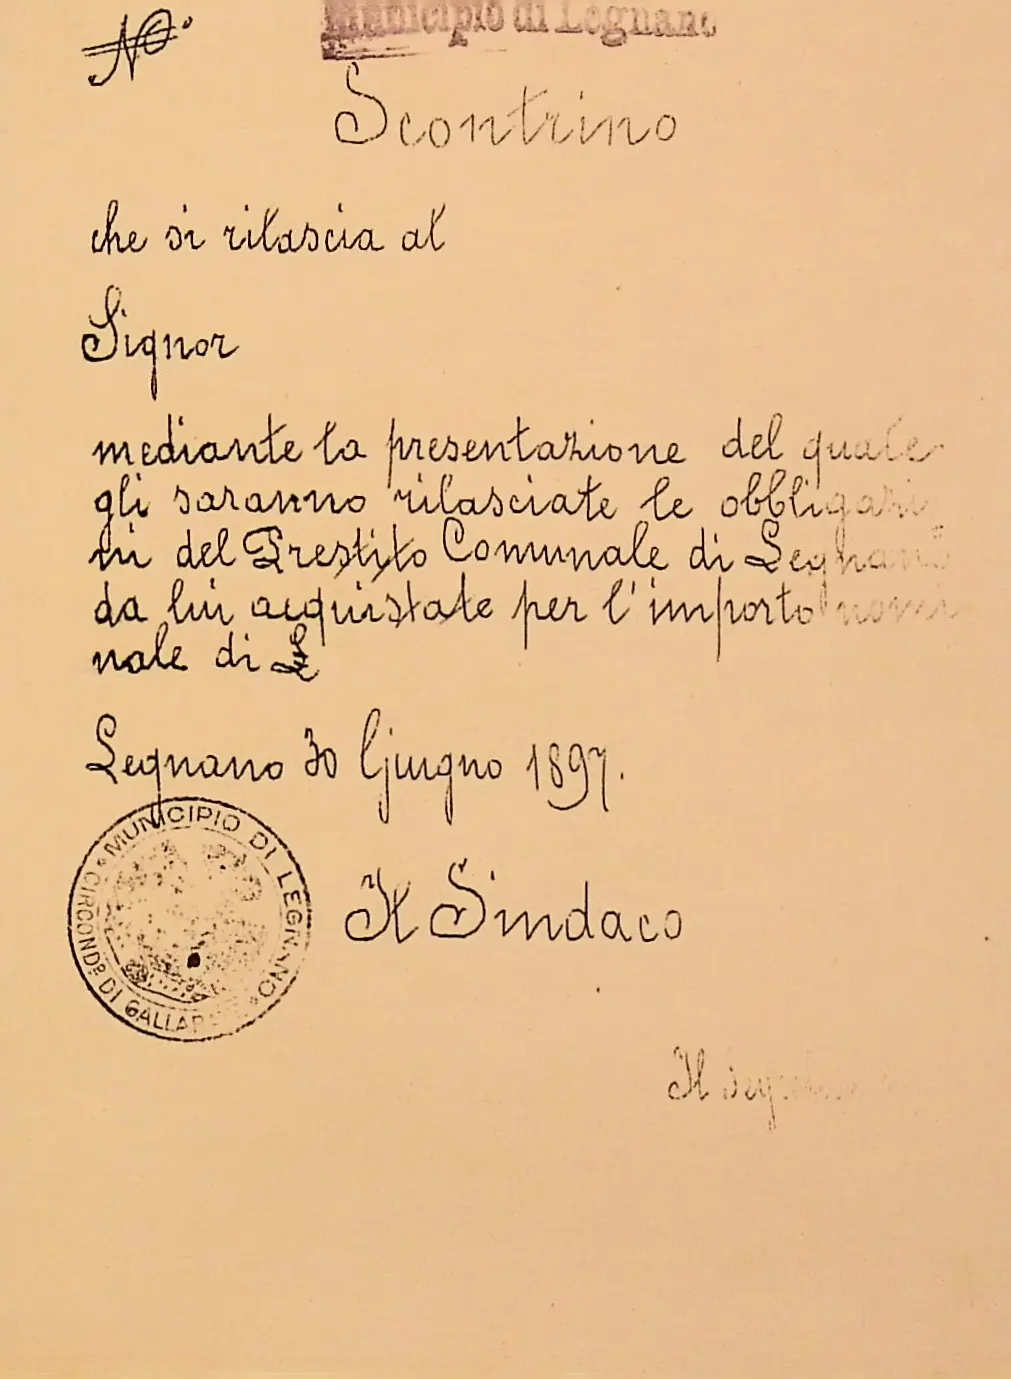 Nº.
Municipio di Legnano
Scontrino
che si rilascia al
Signor
mediante la presentazione del quale
gli saranno rilasciate le obbligazio
ni del Prestito Comunale di Legnano
da lui acquistate per l'importo nomi
nale di £
Legnano 30 Giugno 1897.
MUNICIPIO DI LEGNANO
CIRCOND. DI
Il Sindaco
Il